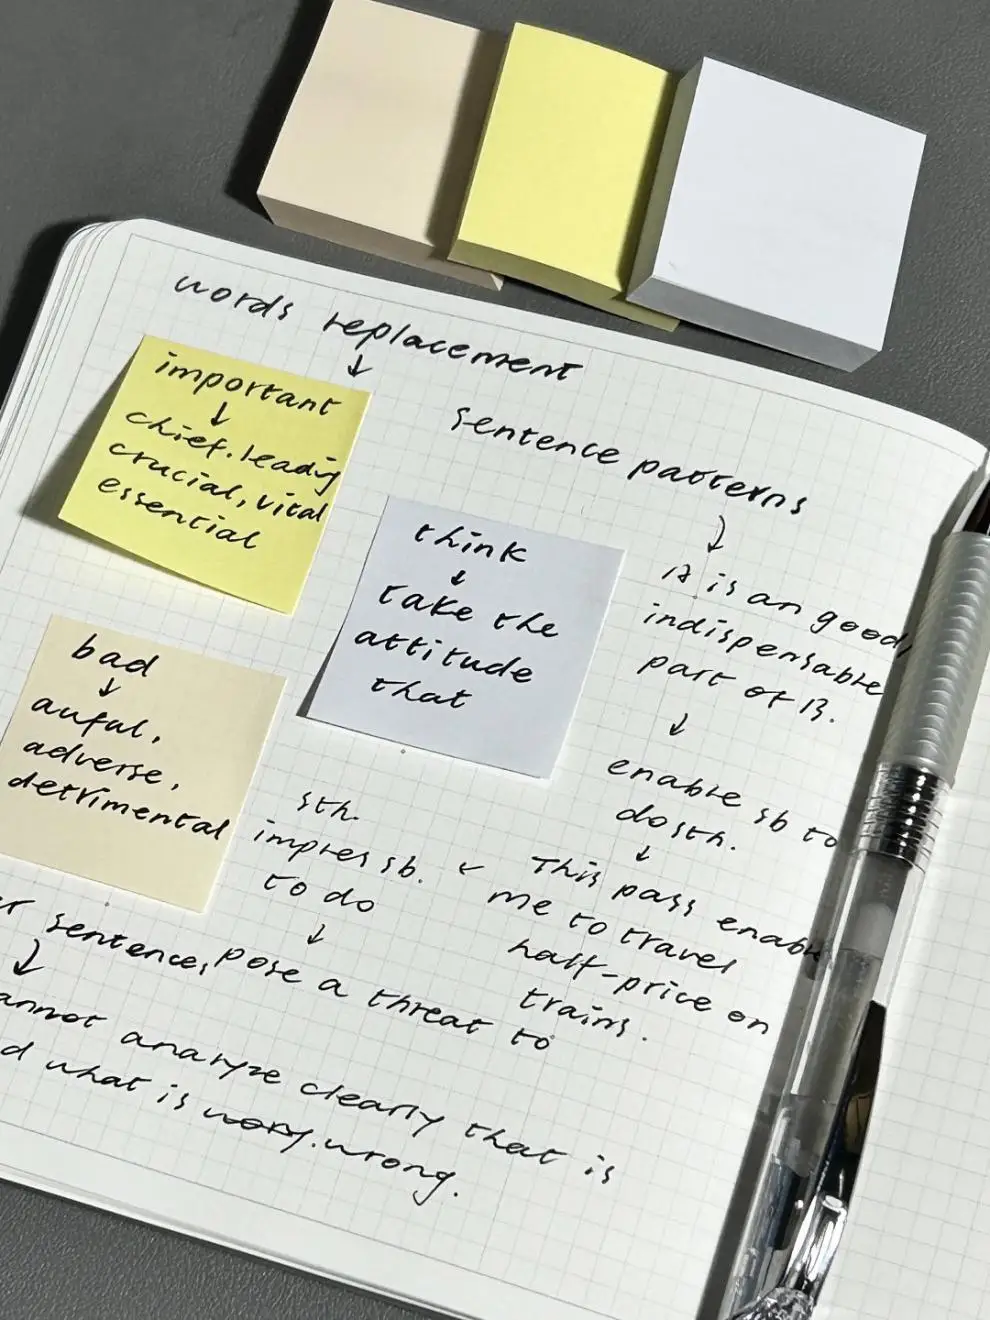 words replacement
↓
important
↓
chief. leading
crucial, vital
essential
think
↓
take the
attitude
that
bad
↓
auful,
adverse,
detrimental
sentence patterns
↓
A is an good,
indispensable
part of B.
↓
enable sb to
do sth.
↓
This pass enable
me to travel
half-price on
trains.
←
sth.
impres sb.
to do
↓
pose a threat to
sentence,
↓
annot analyze clearly that is
d what is wrong.